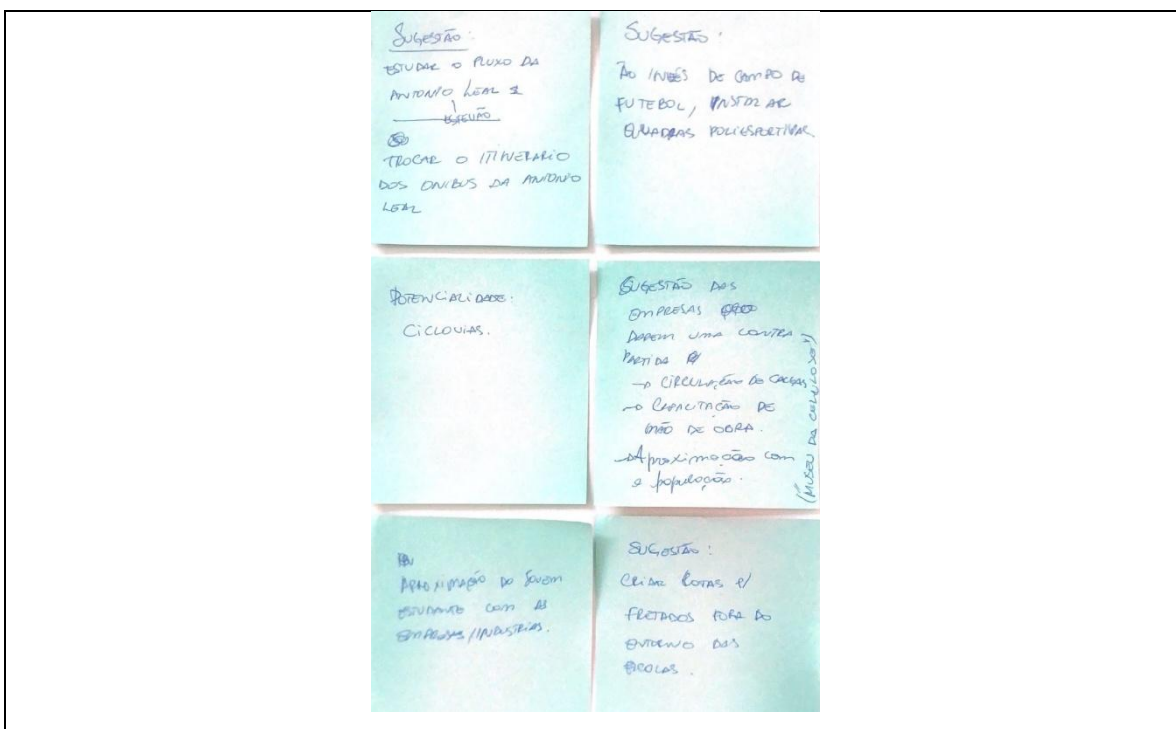 SUGESTÃO:
ESTUDAR O FLUXO DA
ANTONIO LEAL
TROCAR O ITINERARIO
DOS ONIBUS DA ANTONIO
LEAL
SUGESTÃO:
AO INVÉS DE CAMPO DE
FUTEBOL, INSTALAR
QUADRAS POLIESPORTIVAS
POTENCIALIDADE:
CICLOVIAS.
SUGESTÃO DAS
EMPRESAS
DAREM UMA CONTRA
PARTIDA P/
→ CIRCULAÇÃO DE CARGAS
→ CAPACITAÇÃO DE
MÃO DE OBRA.
→ Aproximação com
a população.
(MUSEU DA CELULOSE)
APROXIMAÇÃO DO JOVEM
ESTUDANTE COM AS
EMPRESAS/INDUSTRIAS.
SUGESTÃO:
CRIAR ROTAS P/
FRETADOS FORA DO
ENTORNO DAS
ESCOLAS.